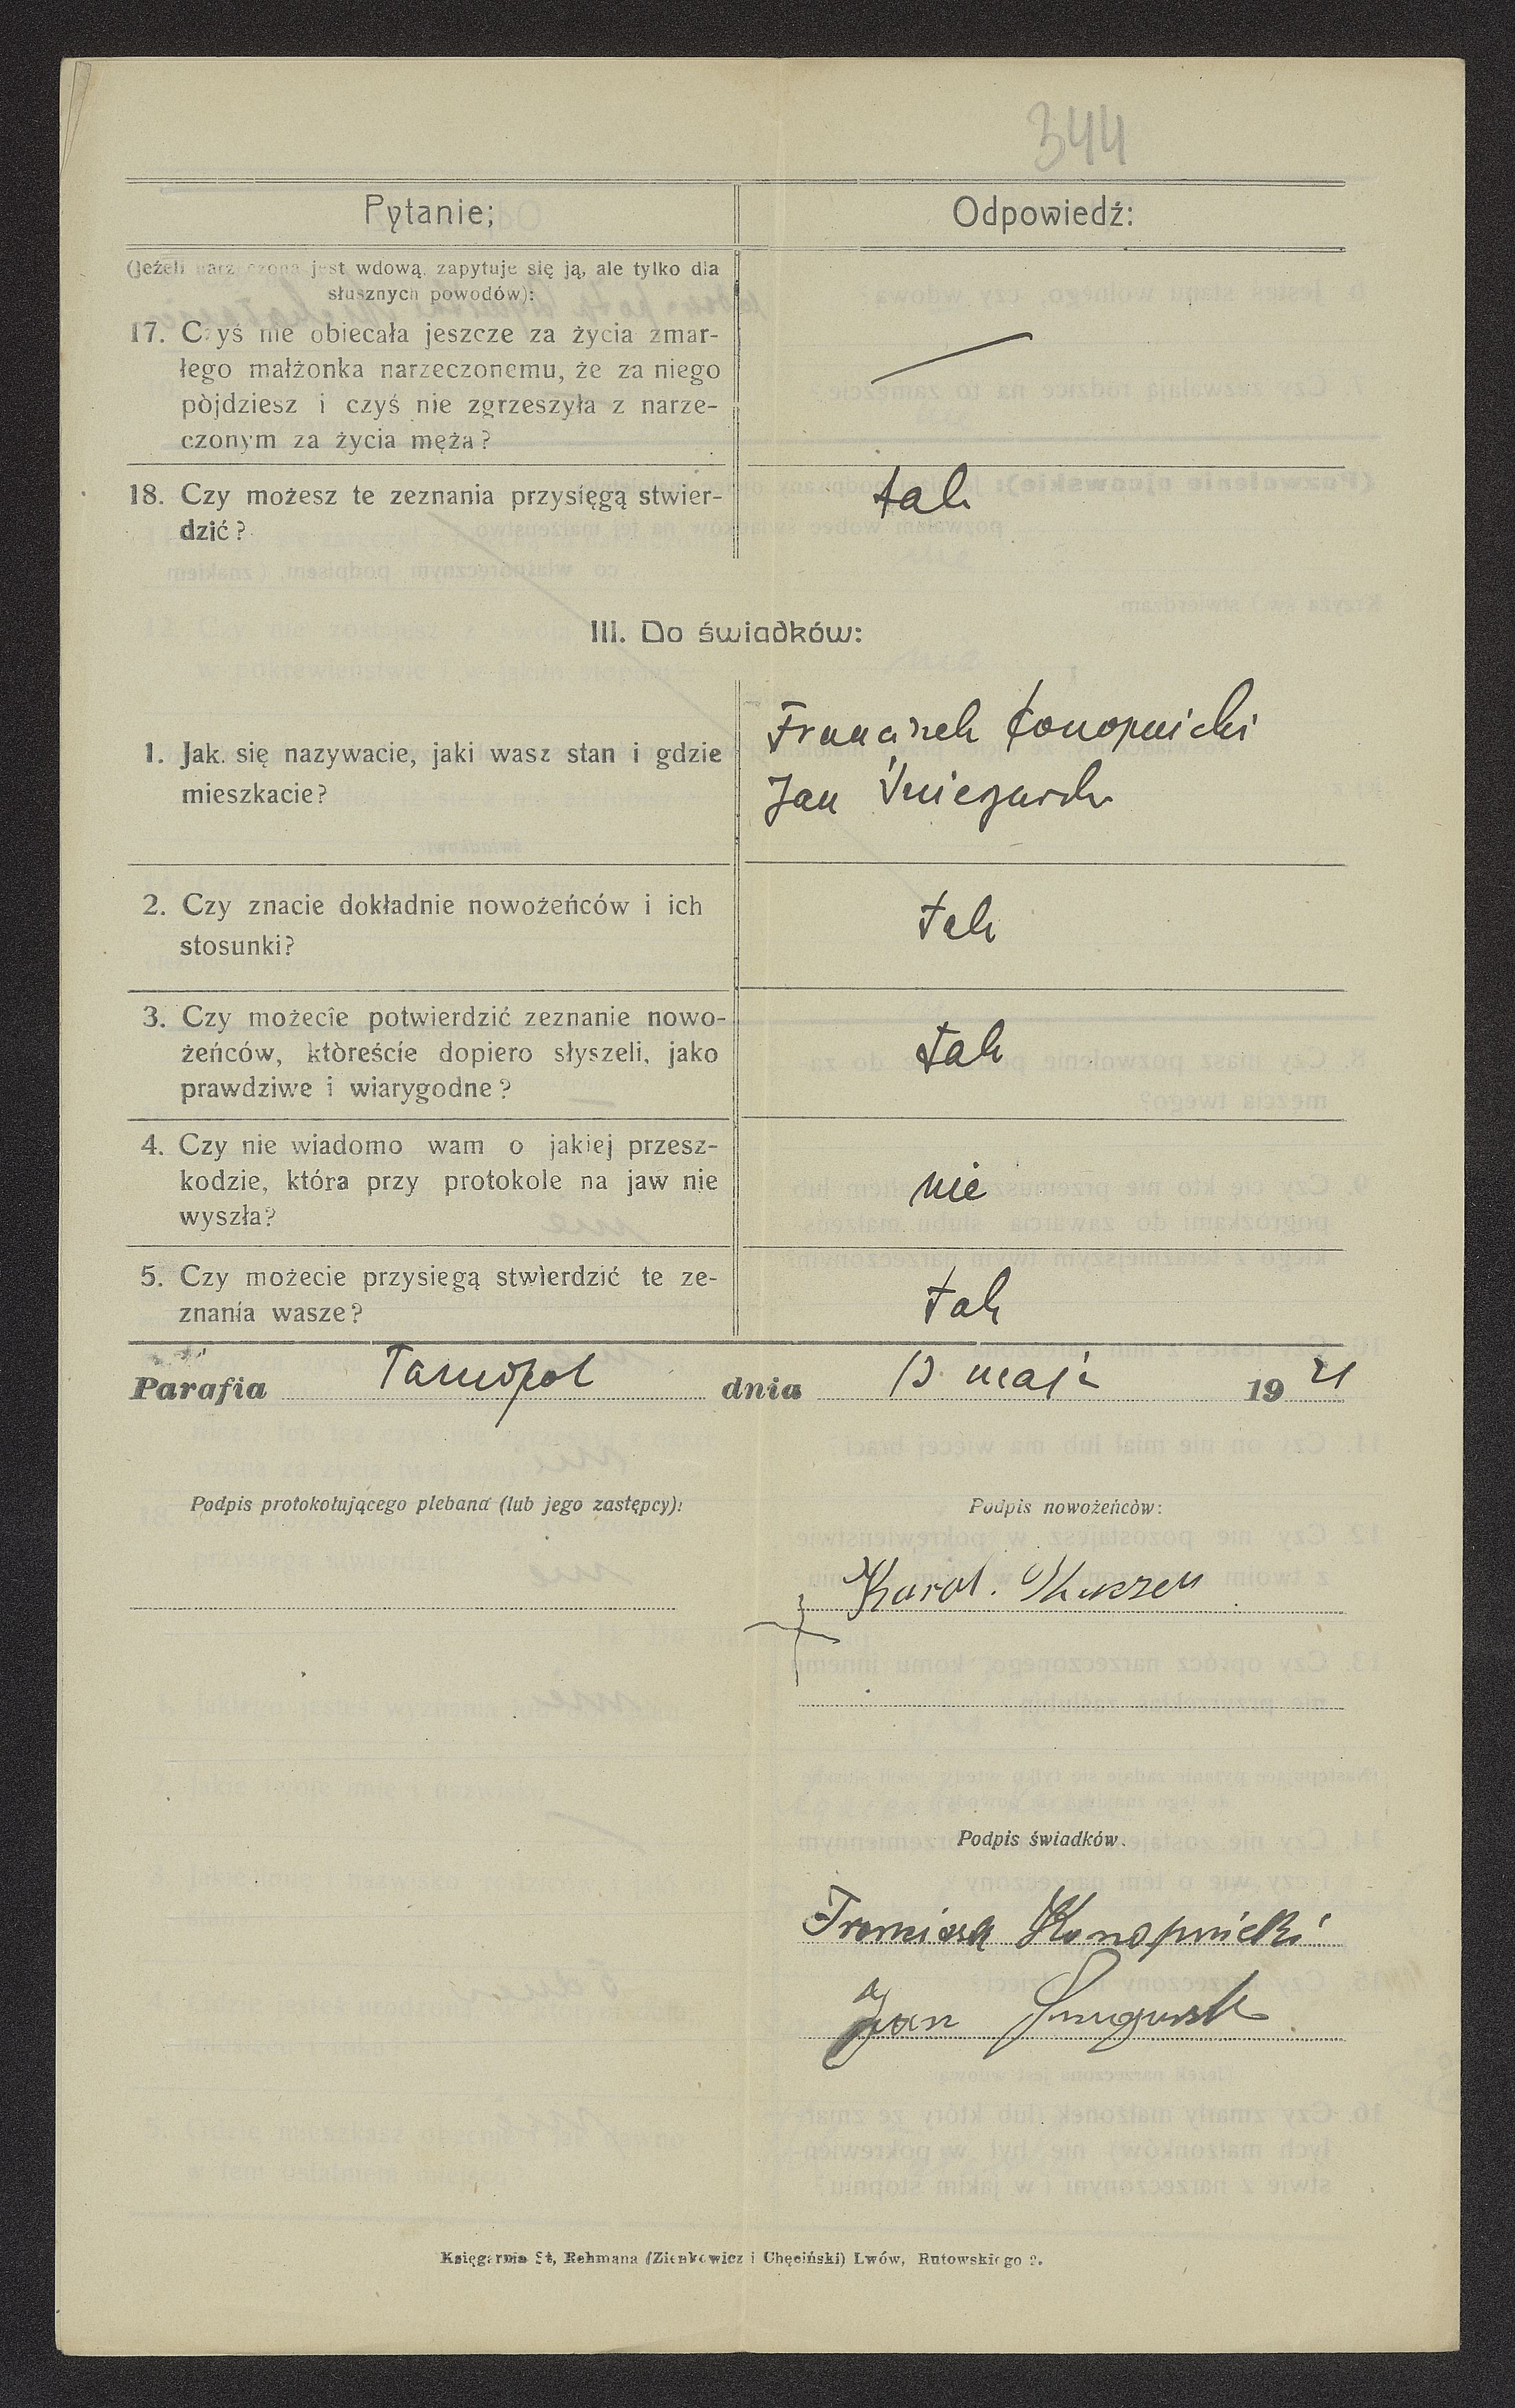 344
Pytanie; Odpowiedź:
(Jeżeli narzeczona jest wdową, zapytuje się ją, ale tylko dla
słusznych powodów):
17. Czyś nie obiecała jeszcze za życia zmar-
łego małżonka narzeczonemu, że za niego
pòjdziesz i czyś nie zgrzeszyła z narze-
czonym za życia męża?
18. Czy możesz te zeznania przysięgą stwier-
dzić?
tak
III. Do świadków:
1. Jak się nazywacie, jaki wasz stan i gdzie
mieszkacie?
Franciszek Konopnicki
Jan
2. Czy znacie dokładnie nowożeńców i ich
stosunki?
tak
3. Czy możecie potwierdzić zeznanie nowo-
żeńców, któreście dopiero słyszeli, jako
prawdziwe i wiarygodne?
tak
4. Czy nie wiadomo wam o jakiej przesz-
kodzie, która przy protokole na jaw nie
wyszła?
nie
5. Czy możecie przysiegą stwierdzić te ze-
znania wasze?
tak
Parafia Tarnopol dnia 13 maja 19 21
Podpis protokołującego plebana (lub jego zastępcy): Podpis nowożeńcòw:
Karol
Podpis świadków.
Franciszek Konopnicki
Jan
Księgarnia St, Rehmana (Zienkowicz i Chęciński) Lwów, Rutowskiego 9.